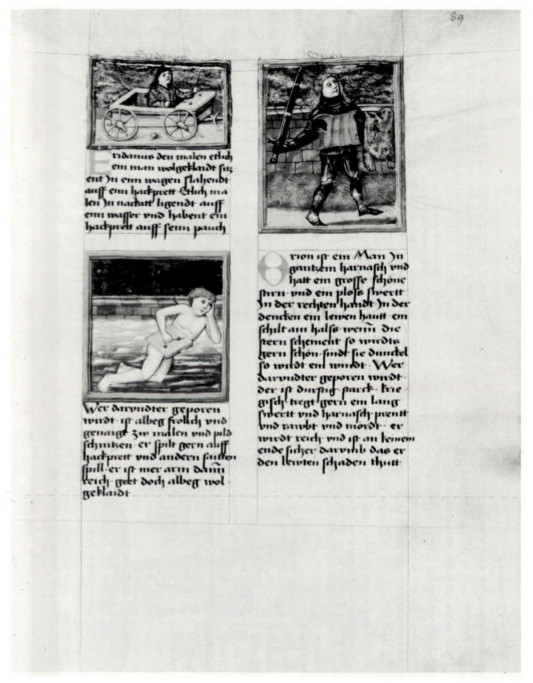 89
Eridanus den malen etlich
ein man wolgeklaidt siz
ent In ein wagen slahendt
auff ein hackprett Etlich ma
len In nackatt ligendt auff
eim wasser vnd habent ein
hackprett auff seim pauch
Wer darundter geporen
wirdt ist albeg frölich vnd
genaigt zw malen vnd pild
schnitzen er spilt gern auff
hackprett vnd andern saitten
spill er ist mer arm dann
reich geet doch albeg wol
geklaidt
Orion ist ein Man In
gantzem harnasch vnd
hatt ein grosse schöne
stirn vnd ein ploss swertt
In der rechten handt In der
dencken ein lewen hautt ein
schilt am halss wenn die
stern scheinent so wirdts
gern schön sindt sie dunckel
so wirdt ein windt Wer
darundter geporen wirdt
der ist durstig starck krie
gisch tregt gern ein lang
swertt vnd harnasch prentt
vnd rawbt vnd mördt er
wirdt reich vnd ist an keinem
ende sicher darumb das er
den lewten schaden thutt